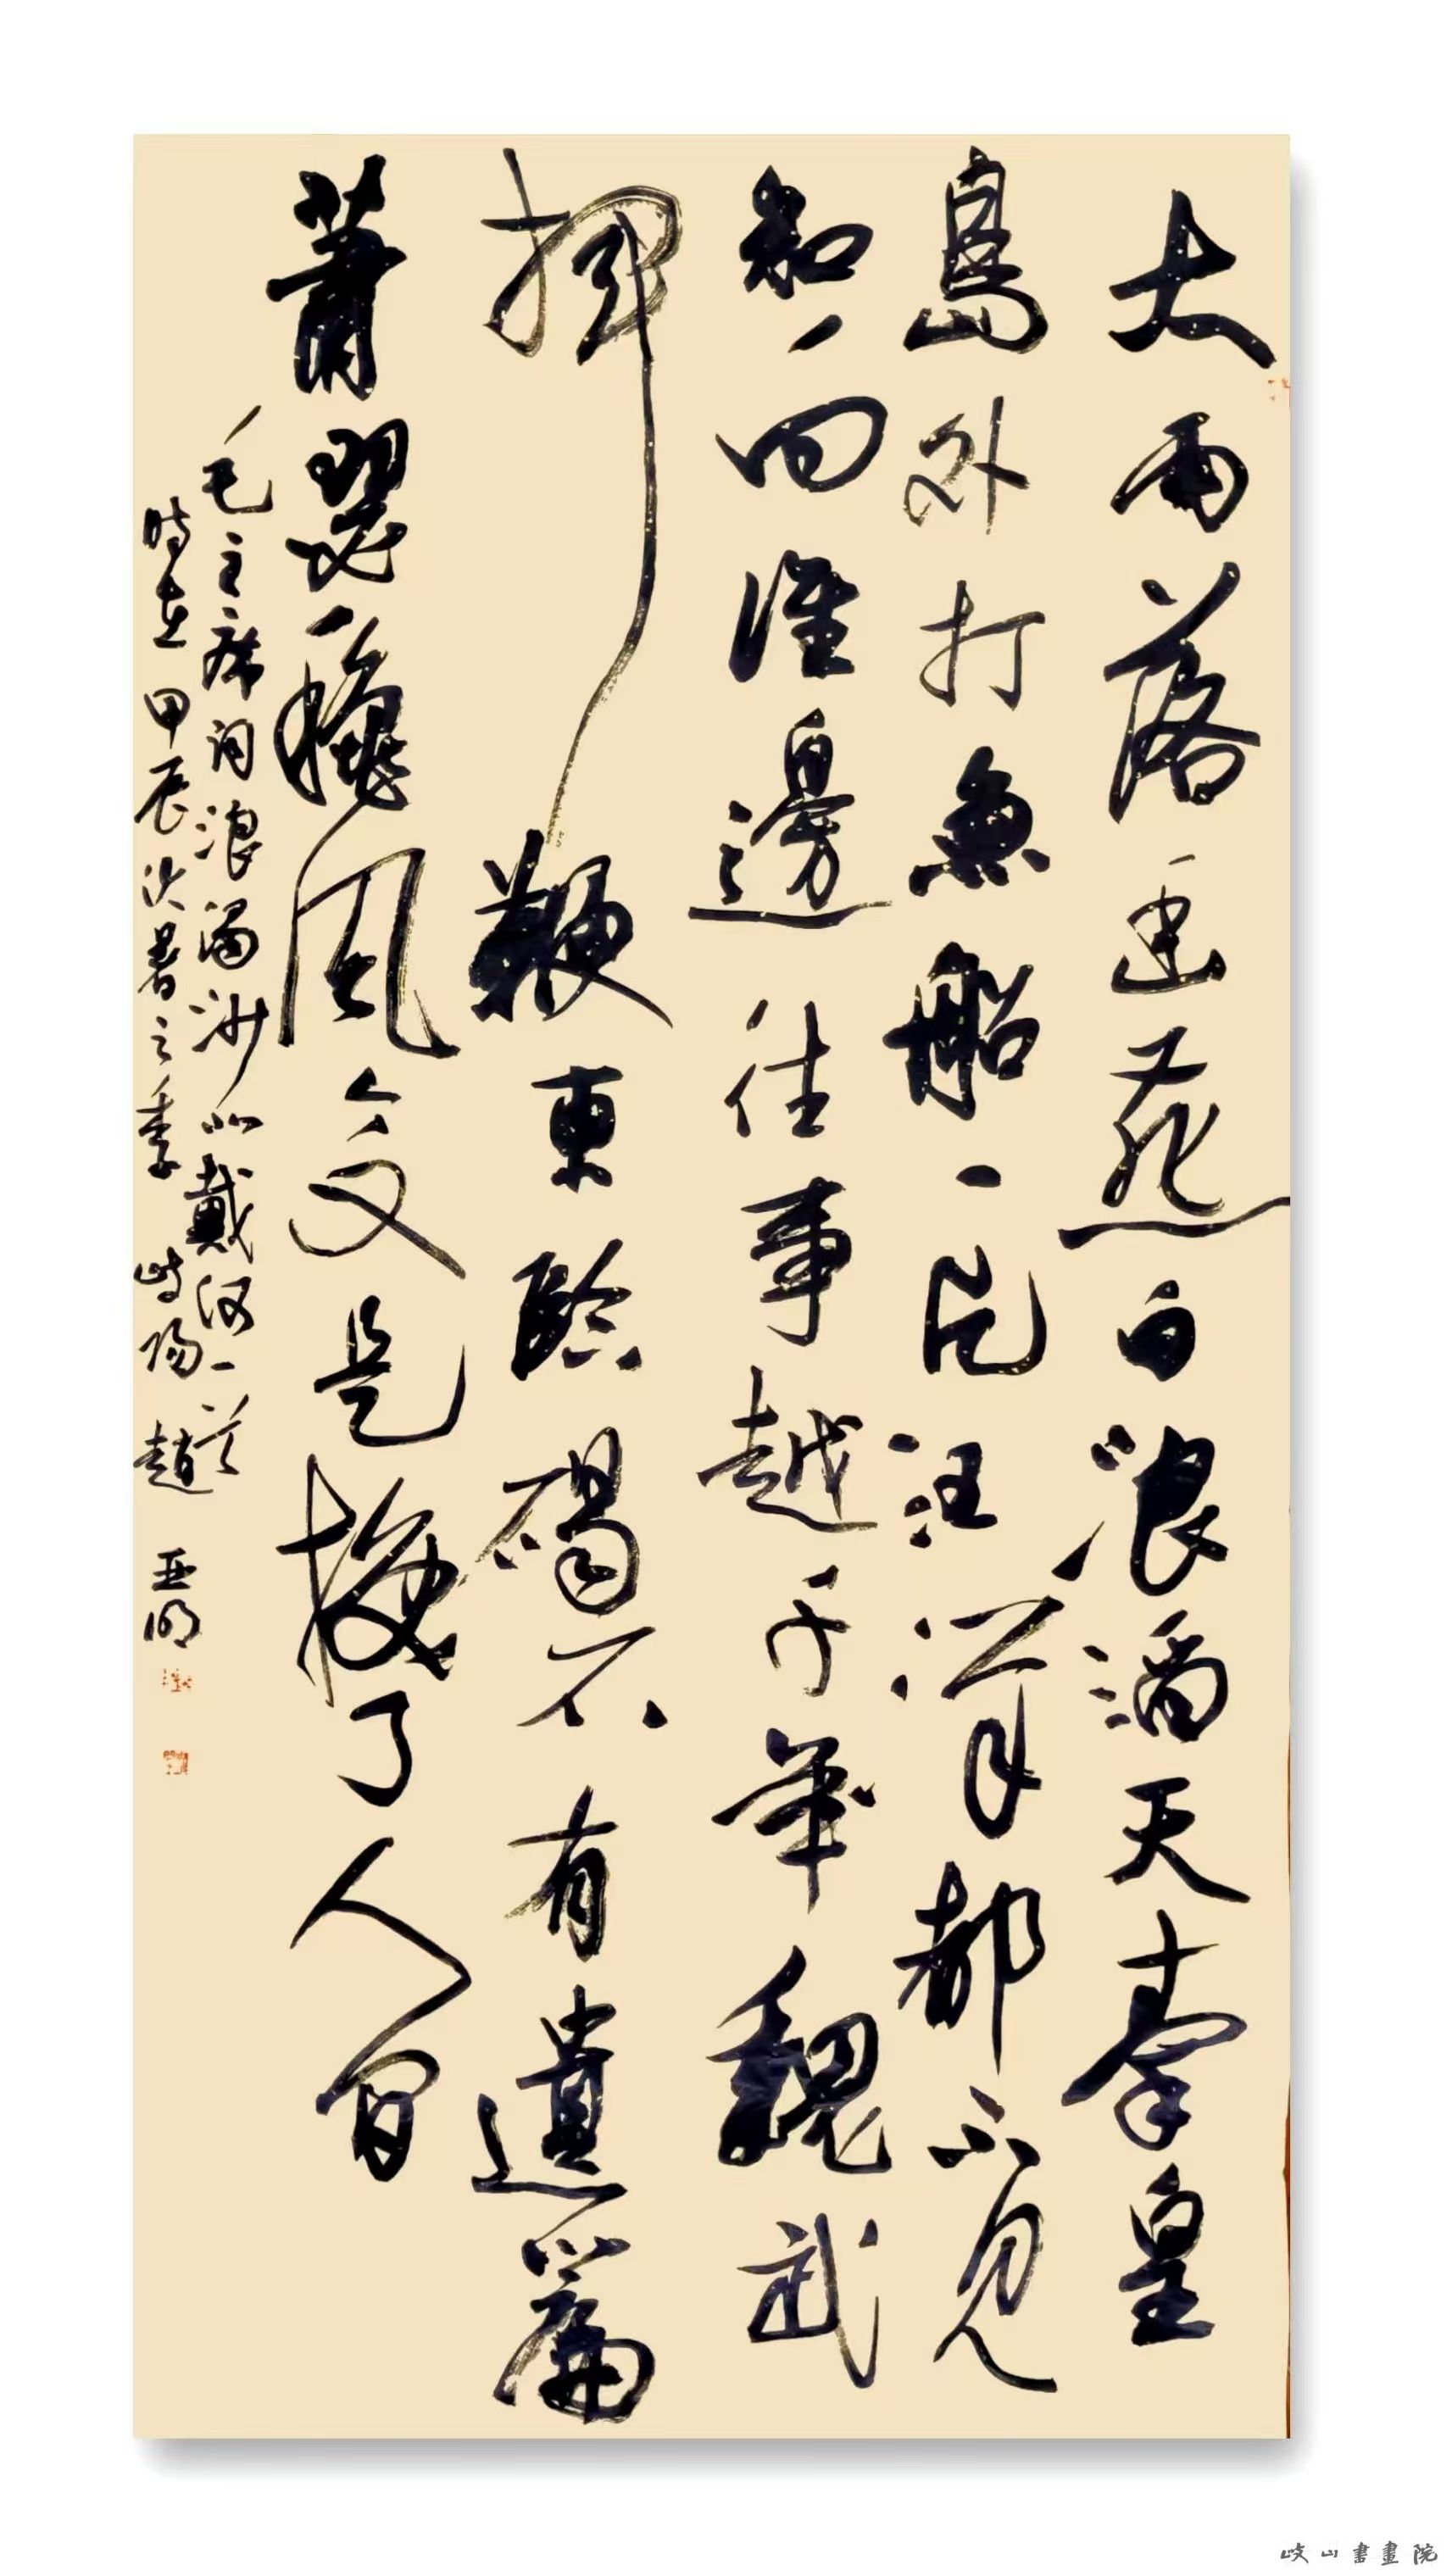 大雨落幽燕白浪滔天秦皇
島外打魚船一片汪洋都不見
知向誰邊往事越千年魏武
揮鞭東臨碣石有遺篇
蕭瑟穐風今又是換了人間
毛主席詞浪淘沙北戴河一首
時在甲辰次暑之季岐陽趙亞明
岐山書畫院